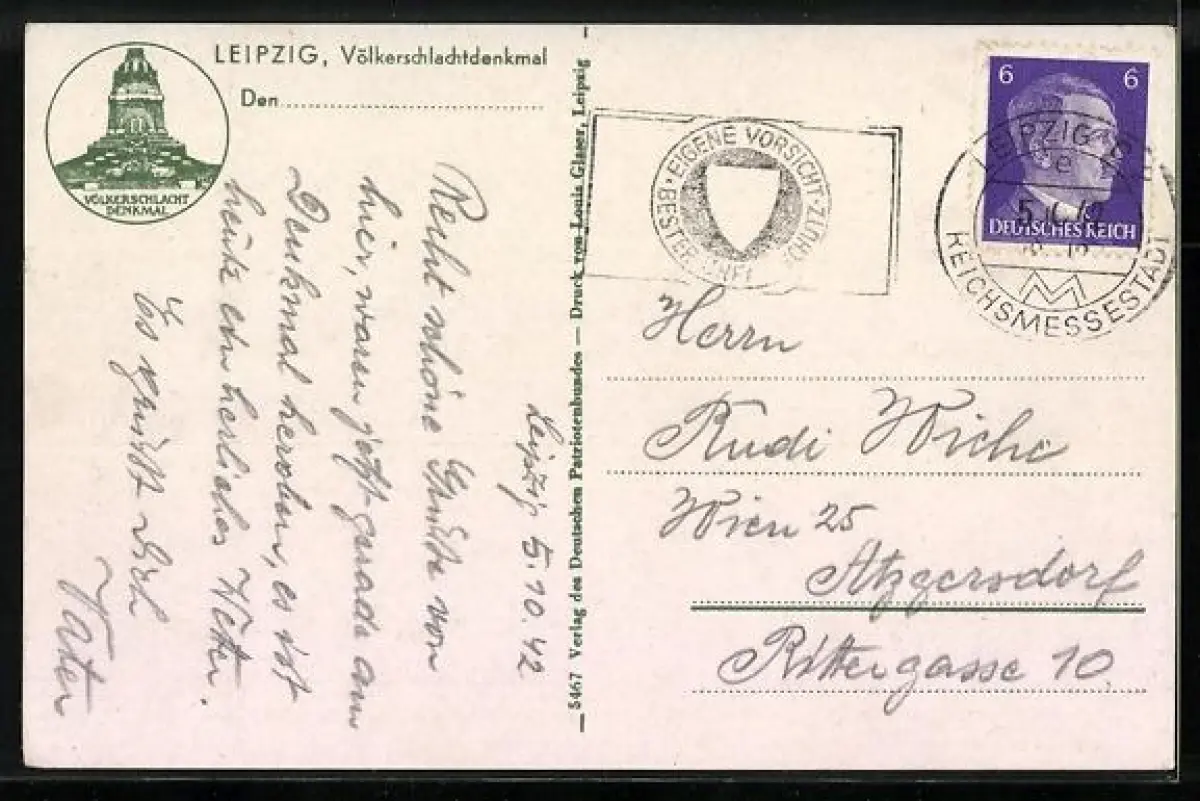 LEIPZIG, Völkerschlachtdenkmal
Den
VÖLKERSCHLACHT
DENKMAL
Leipzig 5.10.42
Recht schöne Grüße von
hier, waren jetzt gerade am
Denkmal heroben, es ist
heute ein herliches Wetter.
Es grüßt Dich
Vater
5467 Verlag des Deutschen Patriotenbundes — Druck von Louis Glaser, Leipzig
EIGENE VORSICHT
BESTER
6 6
DEUTSCHES REICH
LEIPZIG
e
REICHSMESSESTADT
Herrn
Rudi Wiche
Wien 25
Atzgersdorf
Rittergasse 10.